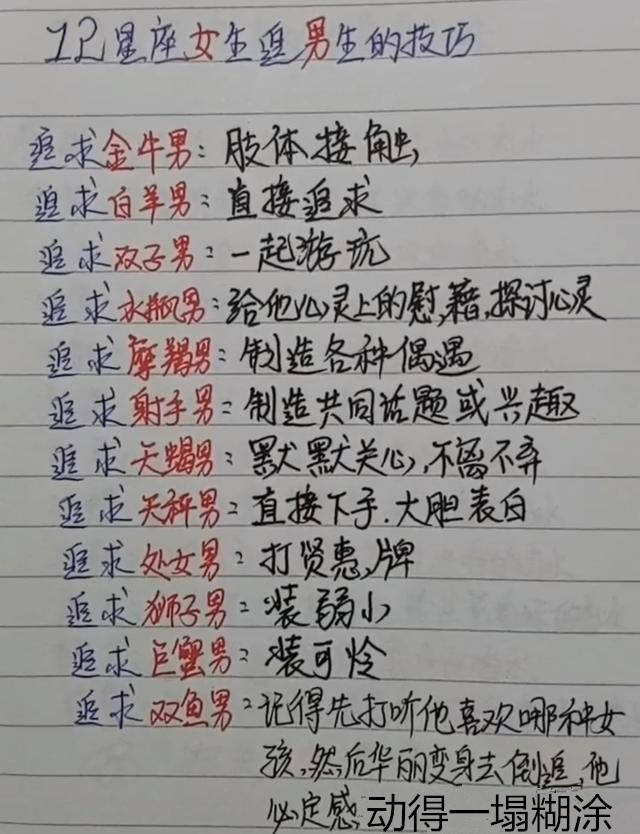 12星座女生追男生的技巧
追求金牛男：肢体接触
追求白羊男：直接追求
追求双子男：一起游玩
追求水瓶男：给他心灵上的慰藉,探讨心灵
追求摩羯男：制造各种偶遇
追求射手男：制造共同话题或兴趣
追求天蝎男：默默关心,不离不弃
追求天秤男：直接下手.大胆表白
追求处女男：打贤惠牌
追求狮子男：装弱小
追求巨蟹男：装可怜
追求双鱼男：记得先打听他喜欢哪种女
孩,然后华丽变身去倒追,他
必定感动得一塌糊涂